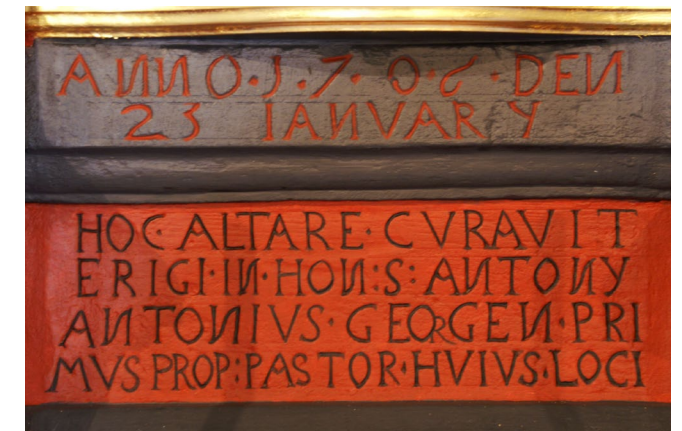 ANNO·J·7·0·6·DEN
23 IANUARY
HOC·ALTARE·CVRAVIT
ERIGI·IN·HON:S:ANTONY
ANTONIVS·GEORGEN·PRI
MVS PROP:PASTOR·HVIVS·LOCI